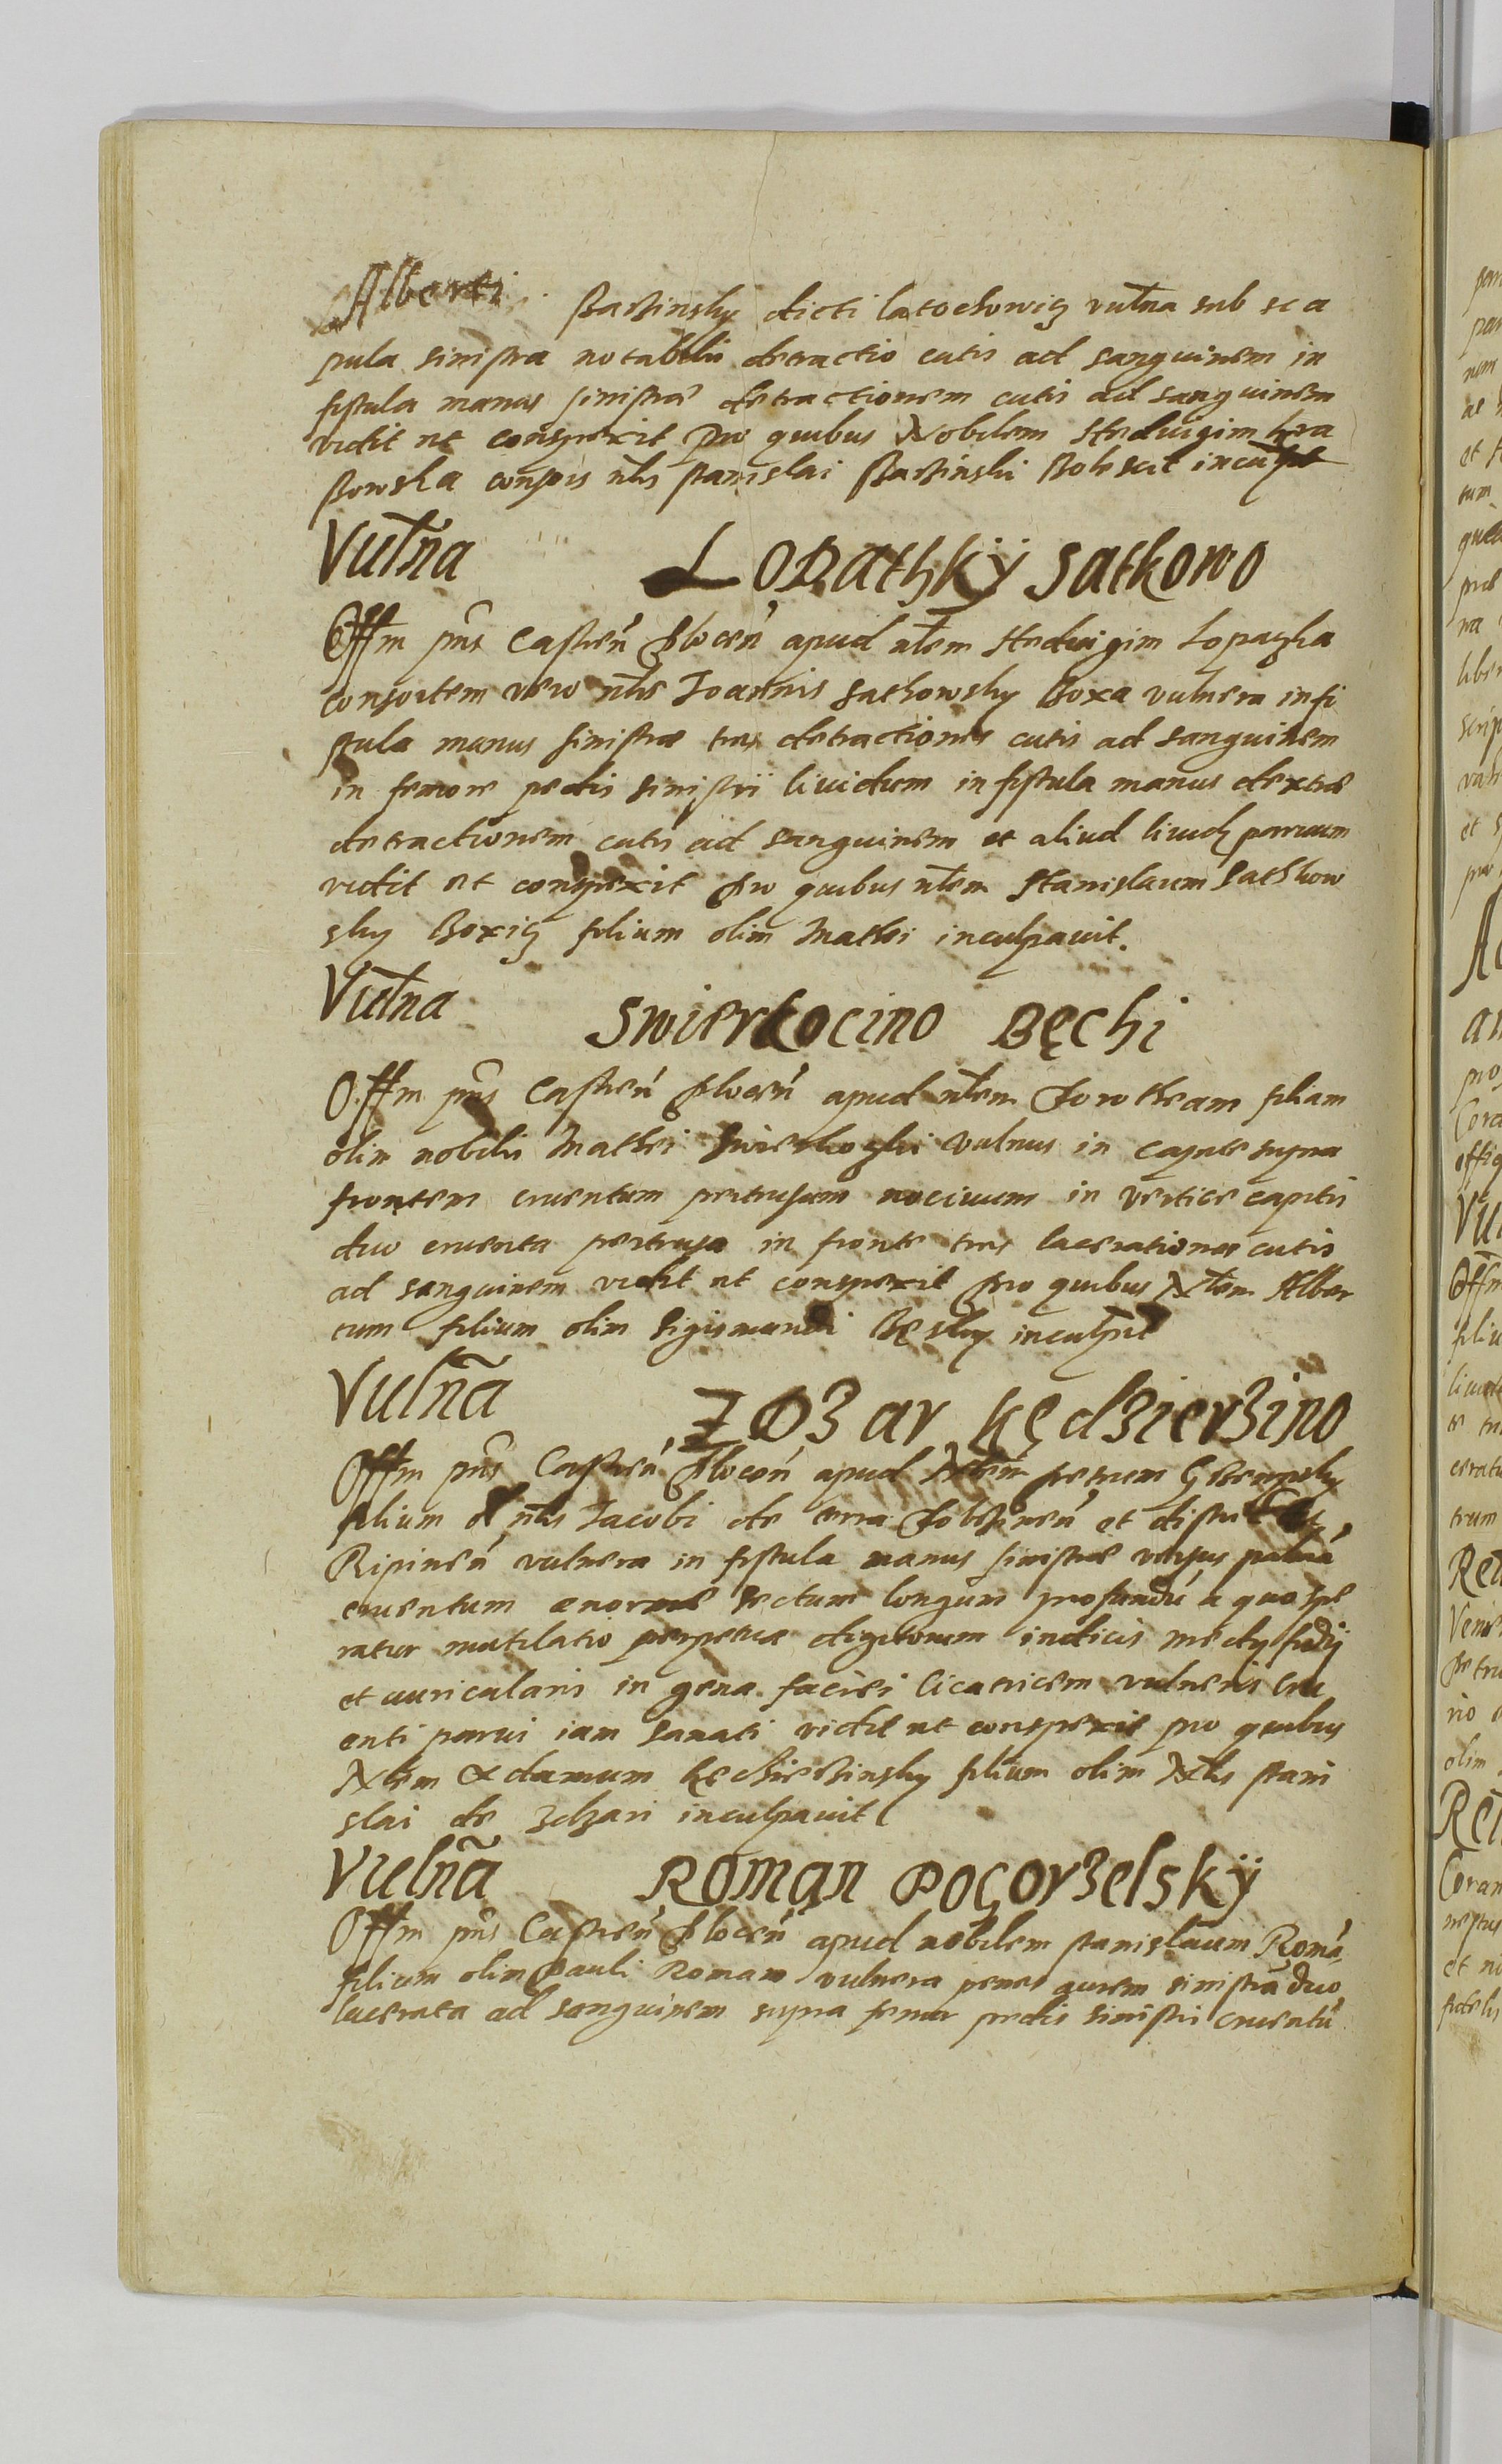 Alberti Barzinsky dicti Latochowicz vulna sub sca
pula sinistra notabilis detractio cutis ad sanguinem in
fistula manus sinistræ detractionem cutis ad sanguinem
vidit et conspexit Pro quibus Nobilem Heduigim
consors nlis Stanislai inculpt
Vulna Lopathkÿ Satkowo
Offm pns Castren Plocen apud nlem Heduigim Lopaczka
consortem vero nlis Joannis Sathowsky Boxa vulnera in fi
stula manus sinistræ tres detractiones cutis ad sanguinem
in femore pedis sinistri liuidum in fistula manus dextræ
detractionem cutis ad sanguinem et aliud liuid paruum
vidit et conspexit Pro quibus nlem Stanislaum Sathkow
sky Boxicz filium olim Mathei inculpauit.
Vulna Swierkocino Bęchi
Offm pns Castren Plocen apud nlem Dorotheam filiam
olim nobilis Mathei Swierkoczki vulnus in capite supra
frontem cruentum pertusum nociuum in vertice capitis
duo cruenta pertusa in fronte tres lacerationes cutis
ad sanguinem vidit et conspexit Pro quibus Nlem Alber
tum filium olim Sigismundi Bęsky inculpt
Vulna Zdzar Kędzierzino
Offm pns Castren Plocen apud Nlem Petrum
filium nlis Jacobi de terra Dobrzinen et
Ripinen vulnera in fistula manus sinistræ versus palmã
cruentum enorme sectum longum profundũ a quo spe
ratur mutilatio perpetua digitorum indicis medy
et auricularis in gena faciei cicatricem vulneris cru
enti parui iam sanati vidit et conspexit pro quibus
Nlem Adamum Kędzierzinsky filium olim Nlis Stani
slai de Zdzari inculpauit
Vulna Roman Pogorzelskÿ
Offm pns Castren Plocen apud nobilem Stanislaum Romã
filium olim Pauli Roman vulnera penes aurem sinistrã duo
lacerata ad sanguinem supra femur pedis sinistri cruentũ